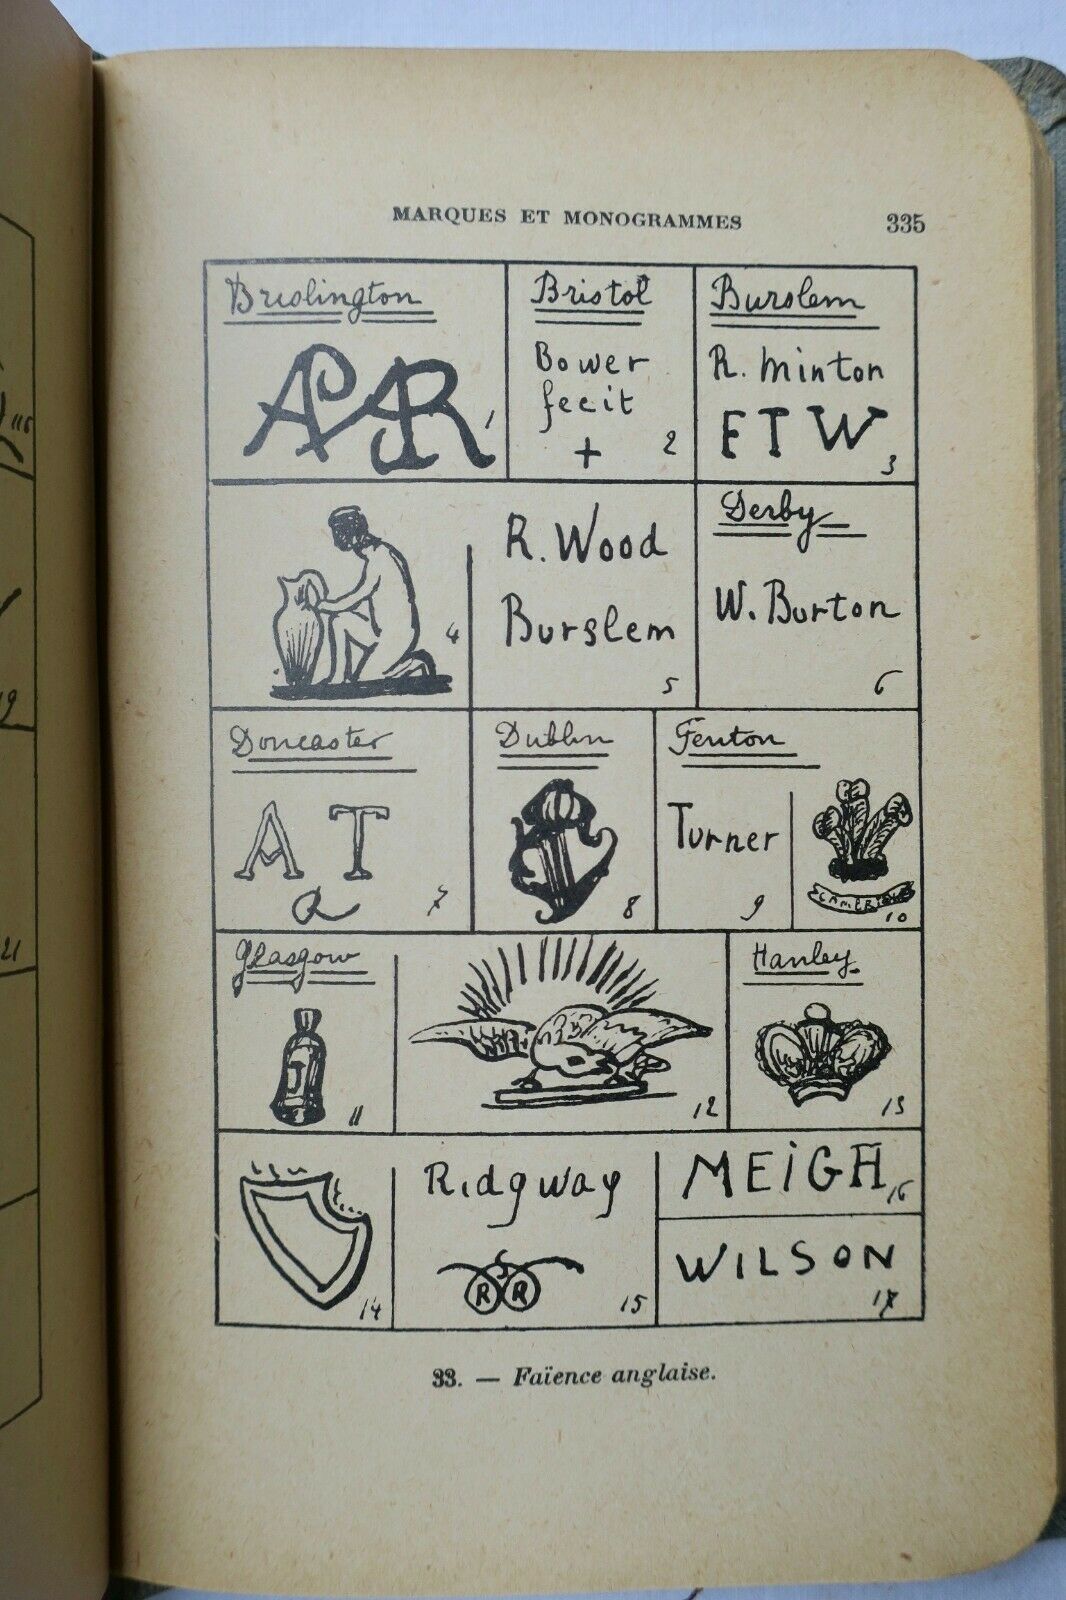 MARQUES ET MONOGRAMMES 335
Brislington
APR
1
Bristol
Bower
fecit
+
2
Burslem
R. Minton
ETW
3
4
R. Wood
Burslem
5
Derby
W. Burton
6
Doncaster
A T
7
Dublin
8
Fenton
Turner
9
10
Glasgow
11
12
Hanley
13
14
Ridgway
J
R R
15
MEiGH
16
WILSON
17
33. — Faïence anglaise.
116
19
21